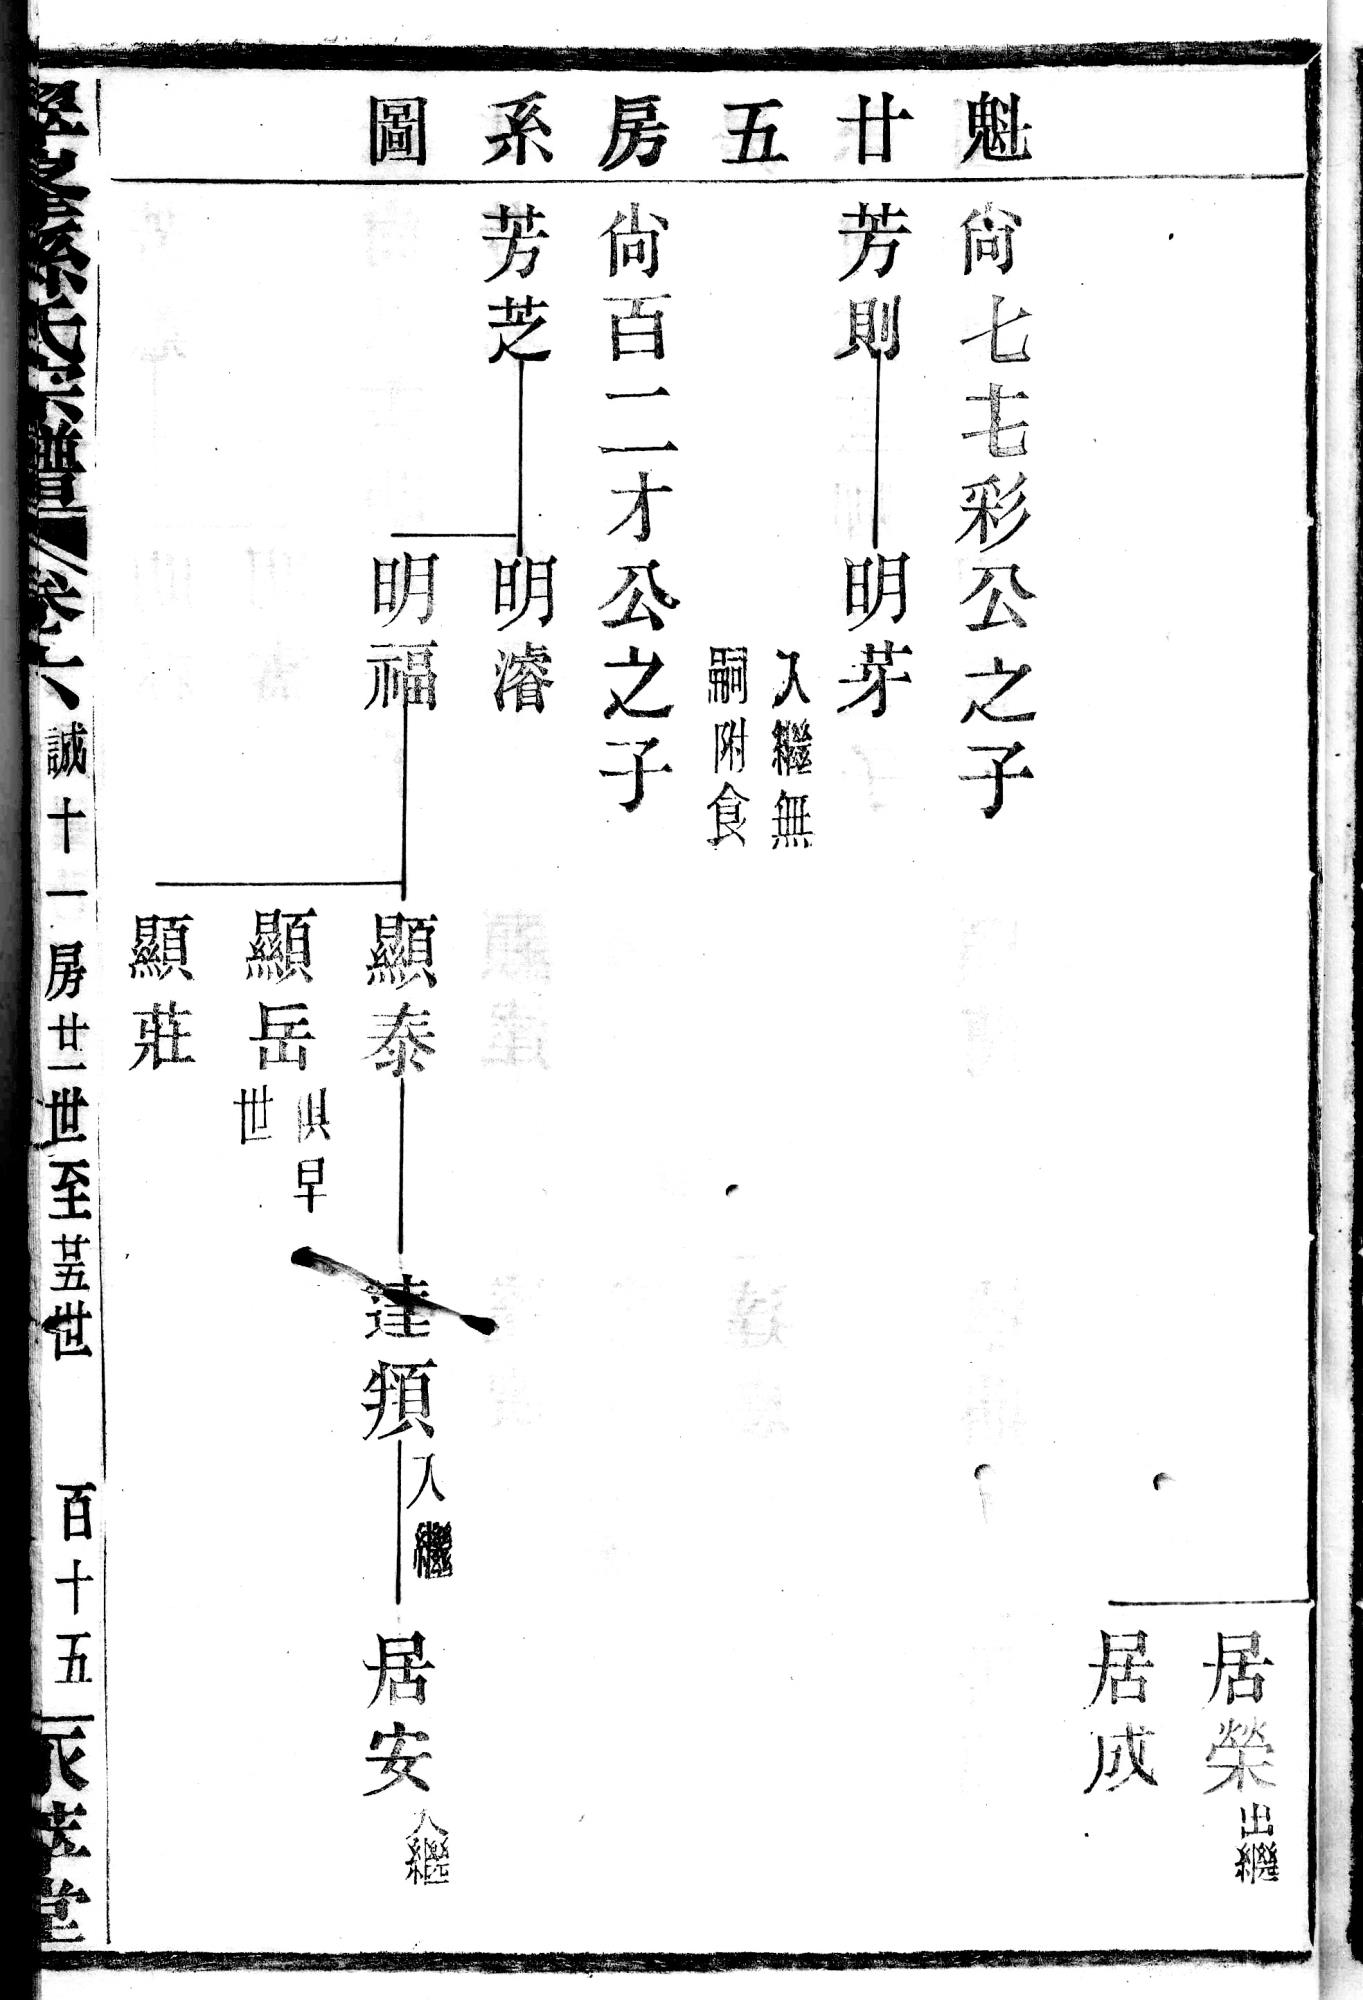 魁廿五房系圖
居榮出繼
居成
尙七七彩公之子
芳則
明芽入繼無
嗣附食
尙百二才公之子
芳芝
明濬
明福
顯泰
達頻入繼
居安入繼
顯岳俱早
世
顯莊
孫氏宗譜
卷六
誠十一房廿一世至廿五世
百十五
堂